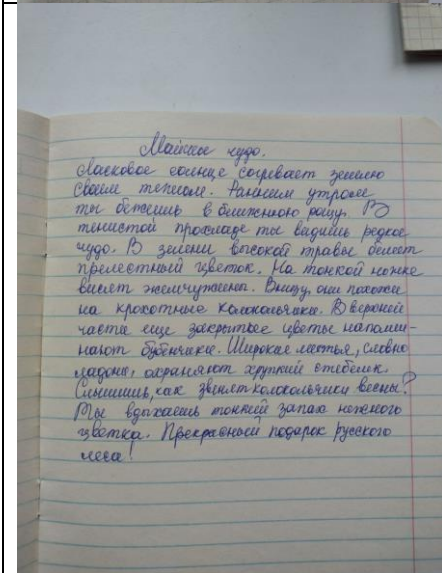 Майское чудо.
Ласковое солнце согревает землю
своим теплом. Ранним утром
ты бежишь в ближнюю рощу. В
тенистой прохладе ты видишь редкое
чудо. В зелени высокой травы белеет
прелестный цветок. На тонкой ножке
висят жемчужины. Внизу, они похожи
на крохотные колокольчики. В верхней
части еще закрытые цветы напоми-
нают бубенчики. Широкие листья, словно
ладони, охраняют хрупкий стебелек.
Слышишь, как звенят колокольчики весны?
Ты вдыхаешь тонкий запах нежного
цветка. Прекрасный подарок русского
леса!